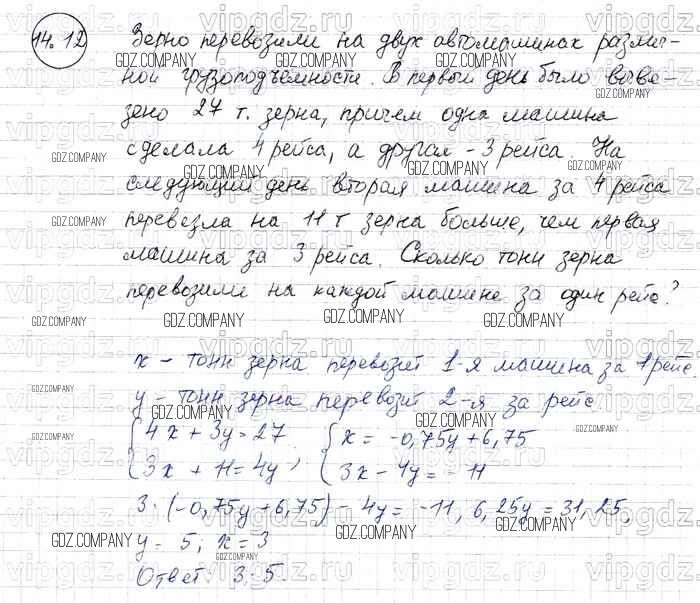 14.12 Зерно перевозили на двух автомашинах различ-
ной грузоподъемности. В первый день было выве-
зено 27 т. зерна, причем одна машина
сделала 4 рейса, а другая - 3 рейса. На
следующий день вторая машина за 4 рейса
перевезла на 11 т зерна больше, чем первая
машина за 3 рейса. Сколько тонн зерна
перевозили на каждой машине за один рейс?
x - тонн зерна перевозит 1-я машина за 1 рейс.
y - тонн зерна перевозит 2-я за рейс.
{4x + 3y = 27 {x = -0,75y + 6,75
{3x + 11 = 4y ; {3x - 4y = -11
3 · (-0,75y + 6,75) - 4y = -11; 6,25y = 31,25;
y = 5; x = 3
Ответ: 3; 5.
GDZ.COMPANY
vipgdz.ru